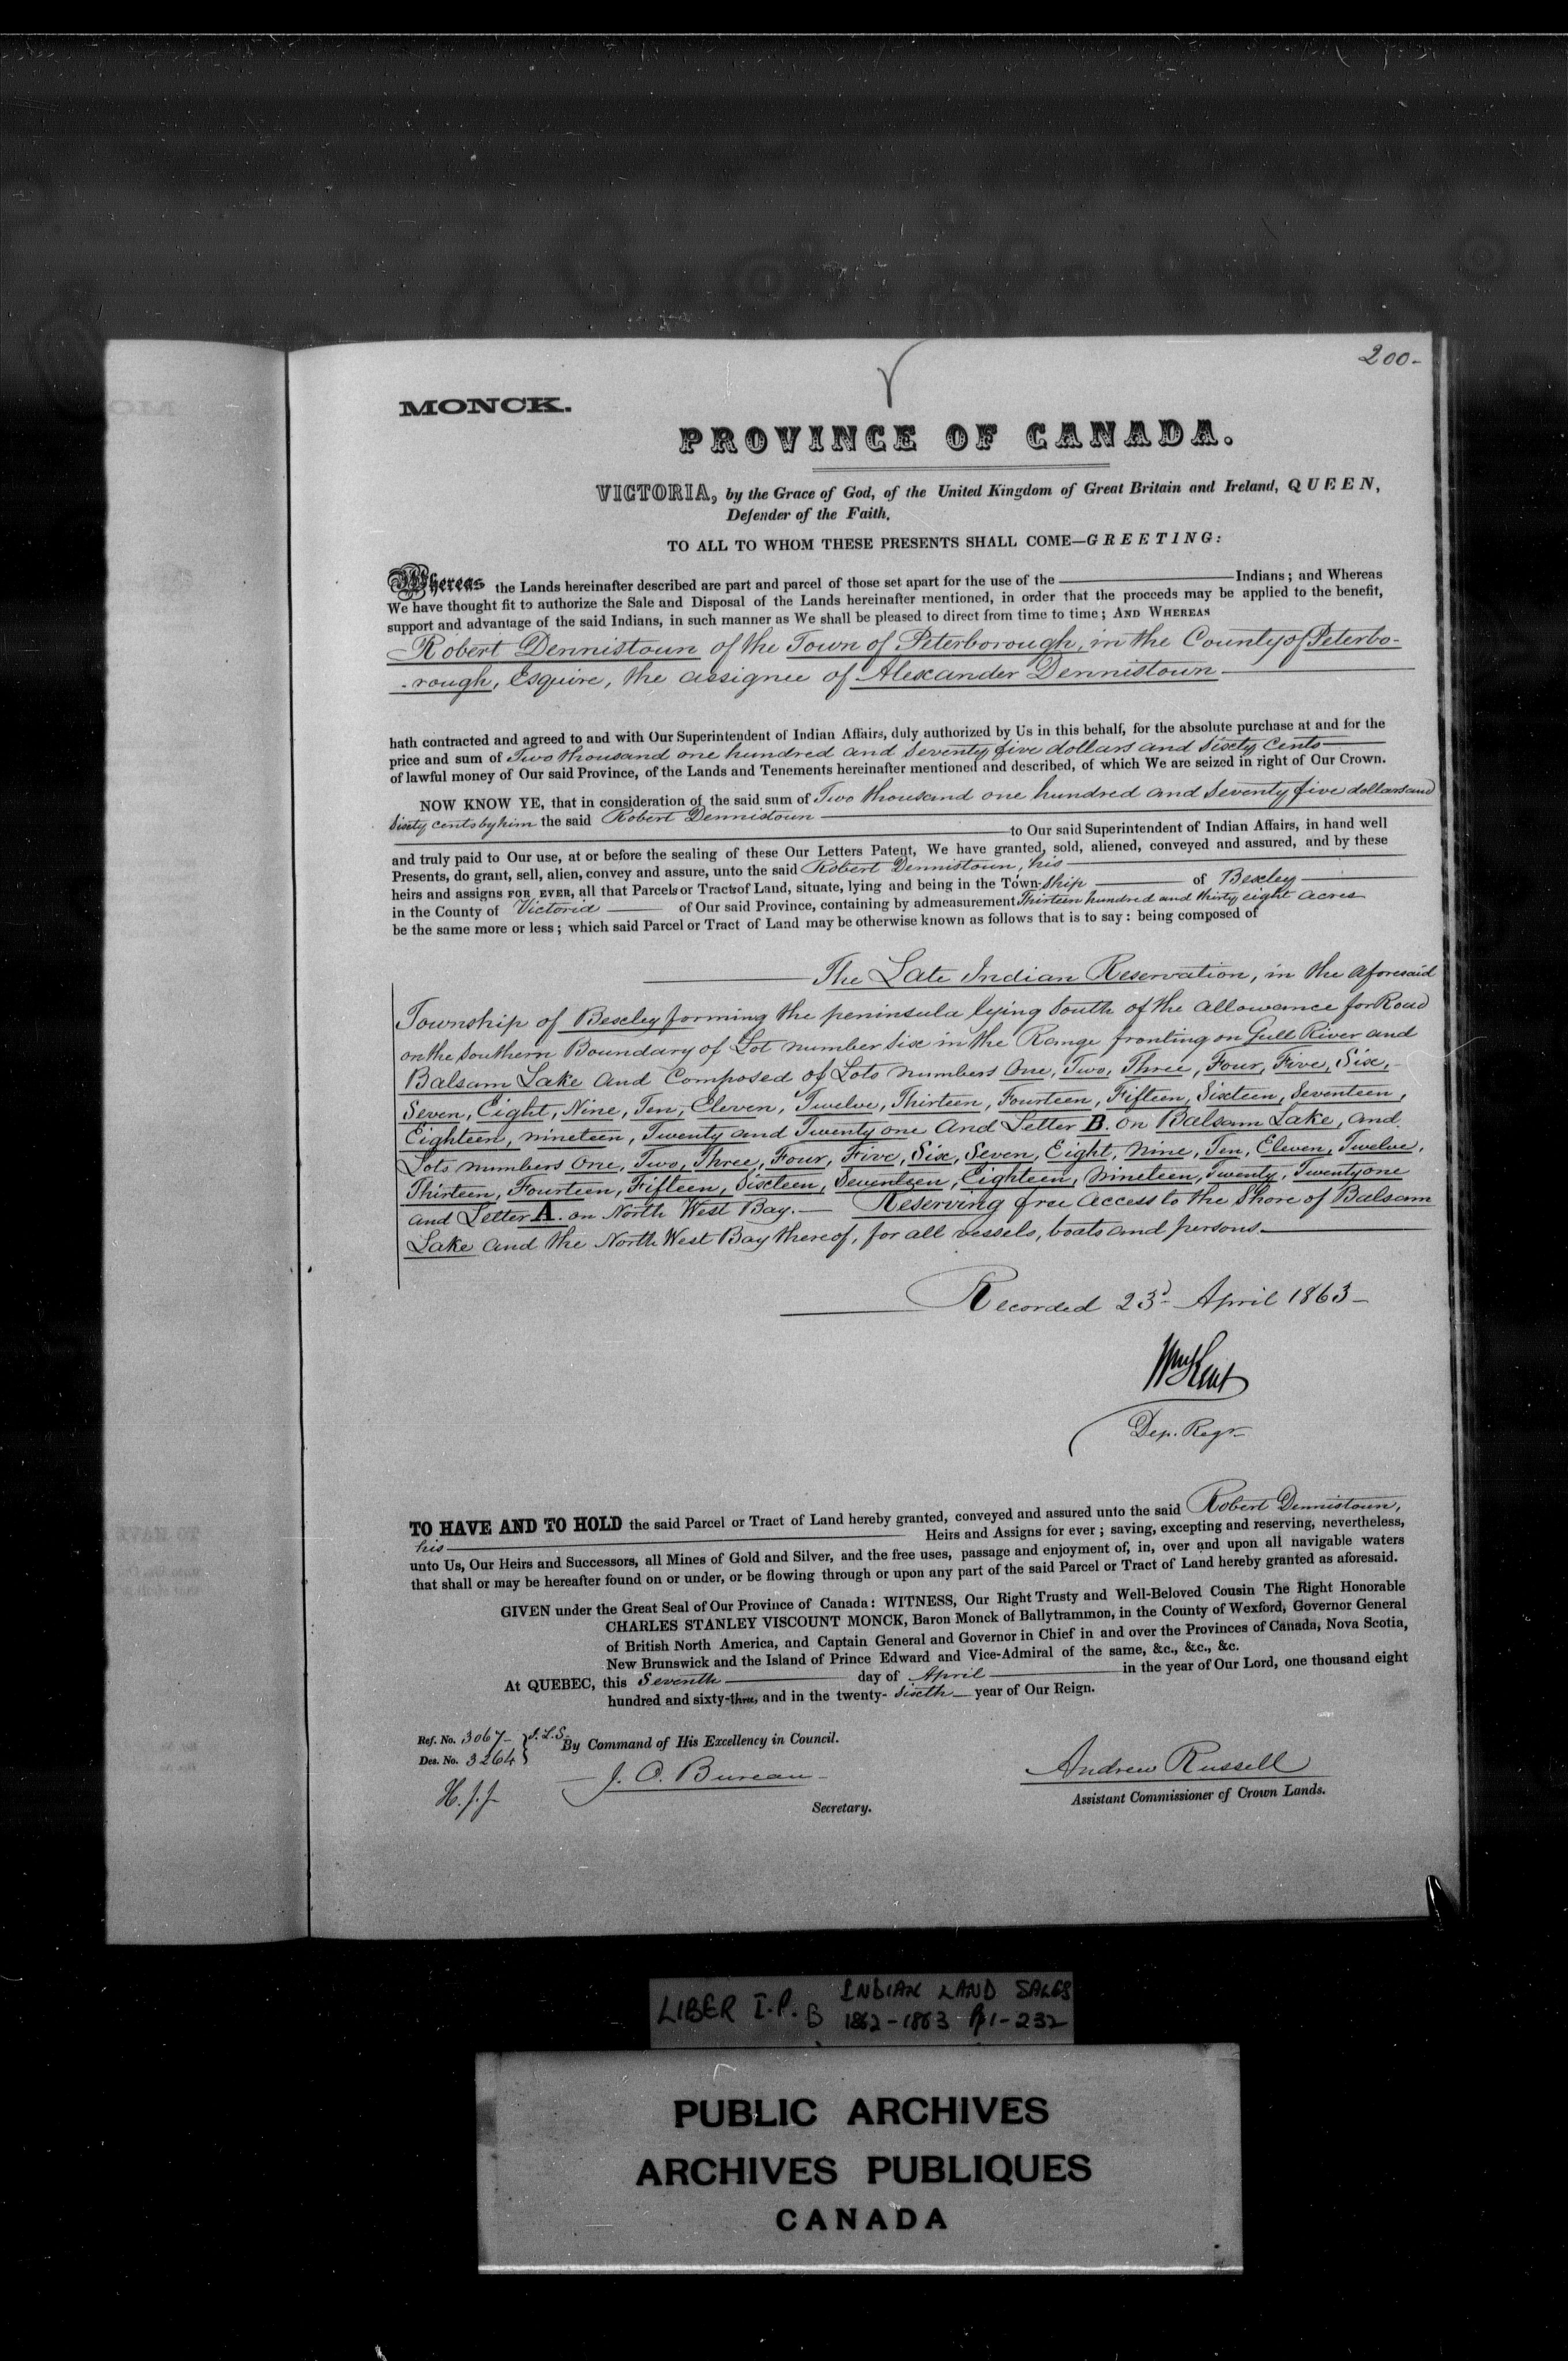 200-
MONCK.
PROVINCE OF CANADA.
VICTORIA, by the Grace of God, of the United Kingdom of Great Britain and Ireland, QUEEN,
Defender of the Faith,
TO ALL TO WHOM THESE PRESENTS SHALL COME—GREETING:
Whereas the Lands hereinafter described are part and parcel of those set apart for the use of the ——— Indians; and Whereas
We have thought fit to authorize the Sale and Disposal of the Lands hereinafter mentioned, in order that the proceeds may be applied to the benefit,
support and advantage of the said Indians, in such manner as We shall be pleased to direct from time to time; AND WHEREAS
Robert Dennistoun of the Town of Peterborough, in the County of Peterbo-
-rough, Esquire, the assignee of Alexander Dennistoun
hath contracted and agreed to and with Our Superintendent of Indian Affairs, duly authorized by Us in this behalf, for the absolute purchase at and for the
price and sum of Two thousand one hundred and Seventy five dollars and Sixty Cents
of lawful money of Our said Province, of the Lands and Tenements hereinafter mentioned and described, of which We are seized in right of Our Crown.
NOW KNOW YE, that in consideration of the said sum of Two thousand one hundred and Seventy five dollars and
Sixty cents by him the said Robert Dennistoun
to Our said Superintendent of Indian Affairs, in hand well
and truly paid to Our use, at or before the sealing of these Our Letters Patent, We have granted, sold, aliened, conveyed and assured, and by these
Presents, do grant, sell, alien, convey and assure, unto the said Robert Dennistoun, his
heirs and assigns FOR EVER, all that Parcels or Tracts of Land, situate, lying and being in the Town-Ship ——— of Bexley
in the County of Victoria ——— of Our said Province, containing by admeasurement Thirteen hundred and thirty eight acres
be the same more or less; which said Parcel or Tract of Land may be otherwise known as follows that is to say: being composed of
The Late Indian Reservation, in the aforesaid
Township of Bexley forming the peninsula lying South of the allowance for Road
on the Southern Boundary of Lot number Six in the Range fronting on Gull River and
Balsam Lake and Composed of Lots numbers One, Two, Three, Four, Five, Six,
Seven, Eight, Nine, Ten, Eleven, Twelve, Thirteen, Fourteen, Fifteen, Sixteen, Seventeen,
Eighteen, nineteen, Twenty and Twenty one and Letter B. on Balsam Lake, and
Lots numbers One, Two, Three, Four, Five, Six, Seven, Eight, Nine, Ten, Eleven, Twelve,
Thirteen, Fourteen, Fifteen, Sixteen, Seventeen, Eighteen, Nineteen, Twenty, Twenty one
and Letter A. on North West Bay.— Reserving free access to the Shore of Balsam
Lake and the North West Bay thereof, for all vessels, boats and persons.
Recorded 23d April 1863-
Wm Kent
Dep. Regr
TO HAVE AND TO HOLD the said Parcel or Tract of Land hereby granted, conveyed and assured unto the said Robert Dennistoun,
his ——— Heirs and Assigns for ever; saving, excepting and reserving, nevertheless,
unto Us, Our Heirs and Successors, all Mines of Gold and Silver, and the free uses, passage and enjoyment of, in, over and upon all navigable waters
that shall or may be hereafter found on or under, or be flowing through or upon any part of the said Parcel or Tract of Land hereby granted as aforesaid.
GIVEN under the Great Seal of Our Province of Canada: WITNESS, Our Right Trusty and Well-Beloved Cousin The Right Honorable
CHARLES STANLEY VISCOUNT MONCK, Baron Monck of Ballytrammon, in the County of Wexford, Governor General
of British North America, and Captain General and Governor in Chief in and over the Provinces of Canada, Nova Scotia,
New Brunswick and the Island of Prince Edward and Vice-Admiral of the same, &c., &c., &c.
At QUEBEC, this Seventh ——— day of April ——— in the year of Our Lord, one thousand eight
hundred and sixty-three, and in the twenty-Sixth year of Our Reign.
Ref. No. 3067 } J.L.S.
Des. No. 3264 }
By Command of His Excellency in Council.
H.J.J.
J. O. Bureau
Secretary.
Andrew Russell
Assistant Commissioner of Crown Lands.
LIBER I.P. B INDIAN LAND SALES
1862-1863 Pp 1-232
PUBLIC ARCHIVES
ARCHIVES PUBLIQUES
CANADA